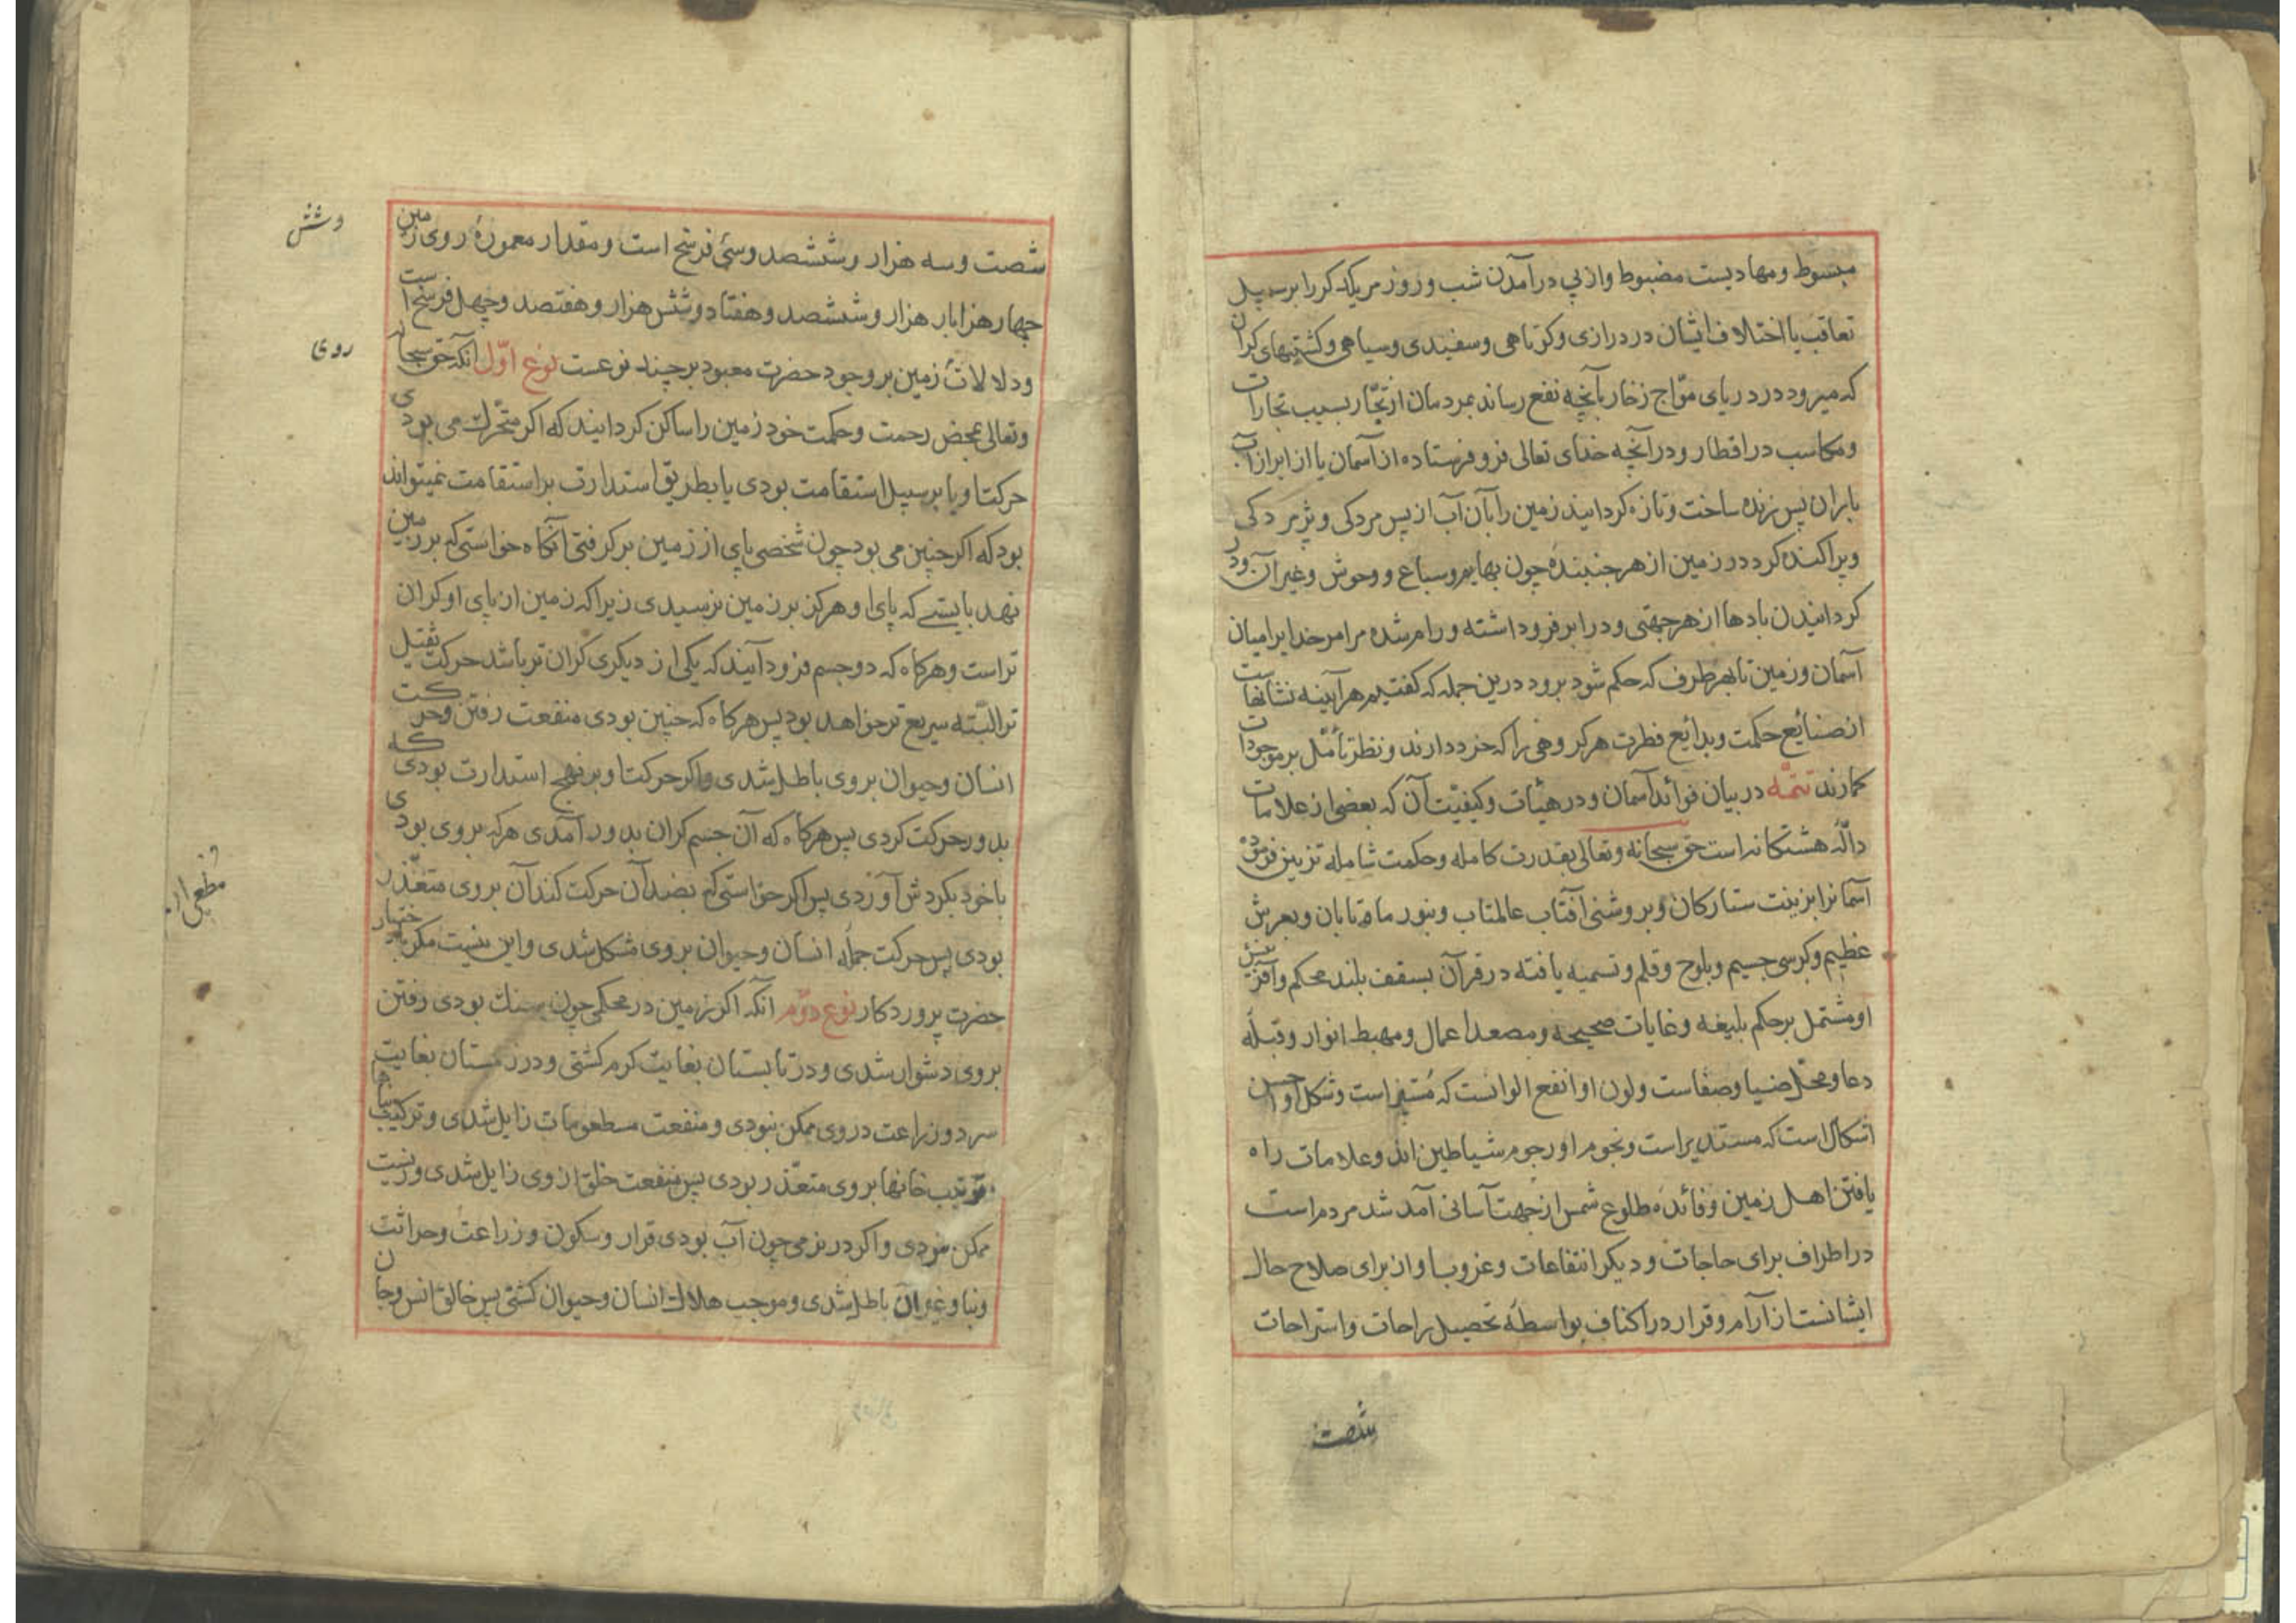 مبسوط و مهادیست مضبوط و از پی در آمدن شب و روز مر یکدیکر را بر سبیل
تعاقب یا اختلاف ایشان در درازی و کوتاهی و سفیدی و سیاهی و کشتیهای کران
که میرود در دریای موّاج زخار بآنچه نفع رساند بمردمان از تجّار بسبب تجارات
و مکاسب در اقطار و در آنچه خدای تعالی فرو فرستاده از آسمان یا از ابر از آب
باران پس زنده ساخت و تازه کردانید زمین را بآن آب از پس مردکی و پژمردکی
و پراکنده کرد در زمین از هر جنبندهٔ چون بهایم و سباع و وحوش و غیر آن و در
کردانیدن بادها از هر جهتی و در ابر فرو داشته و رام شده مر امر خدا یرا میان
آسمان و زمین تا بهر طرف که حکم شود برود درین جمله که کفتیم هر آیینه نشانهاست
از صنایع حکمت و بدایع فطرت هر کروهی را که خرد دارند و نظر تأمّل بر موجودات
کمارند تتمّه در بیان فوائد آسمان و در هیئات و کیفیّت آن که بعضی از علامات
دالّهٔ هشتکانه است حق سبحانه و تعالی بقدرت کامله و حکمت شامله تزیین فرموده
آسمانرا بزینت ستارکان و بروشنی آفتاب عالمتاب و بنور ماه تابان و بعرش
عظیم و کرسی جسیم و بلوح و قلم و تسمیه یافته در قرآن بسقف بلند محکم و آفرینش
او مشتمل بر حکم بلیغه و غایات صحیحه و مصعد اعمال و مهبط انوار و قبلهٔ
دعا و محلّ ضیا و صفاست و لون او انفع الوانست که مُستنیر است و شکل او احسن
اشکال است که مستدیر است و نجوم او رجوم شیاطین اند و علامات راه
یافتن اهل زمین و فائدهٔ طلوع شمس از جهت آسانی آمد شد مردم است
در اطراف برای حاجات و دیکر انتفاعات و غروب او از برای صلاح حال
ایشانست از آرام و قرار در اکناف بواسطهٔ تحصیل راحات و استراحات
شصت
شصت و سه هزار و ششصد و سی فرسخ است و مقدار معمورهٔ روی زمین
چهار هزار بار هزار و ششصد و هفتاد و شش هزار و هفتصد و چهل فرسخ است
و دلالات زمین بر وجود حضرت معبود بر چند نوعست نوع اوّل آنکه حق سبحانه
و تعالی بمحض رحمت و حکمت خود زمین را ساکن کردانید که اکر متحرّک می بودی
حرکت او یا بر سبیل استقامت بودی یا بطریق استدارت بر استقامت نمیتواند
بود که اکر چنین می بود چون شخصی پای از زمین برکرفتی آنکاه خواستی که بر زمین
نهد بایستی که پای او هرکز بر زمین نرسیدی زیرا که زمین از پای او کران
تر است و هرکاه که دو جسم فرود آیند که یکی از دیکری کران تر باشد حرکت ثقیل
تر البتّه سریع تر خواهد بود پس هرکاه که چنین بودی منفعت رفتن و حرکت
انسان و حیوان بر وی باطل شدی و اکر حرکت او بر نهج استدارت بودی که
بدور حرکت کردی پس هرکاه که آن جسم کران بدور آمدی هر که بر وی بودی
با خود بکردش آوردی پس اکر خواستی که بضد آن حرکت کند آن بر وی متعذّر
بودی پس حرکت جملهٔ انسان و حیوان بر وی مشکل شدی و این نیست مکر باختیار
حضرت پروردکار نوع دوّم آنکه اکر زمین در محکمی چون سنک بودی رفتن
بر وی دشوار شدی و در تابستان بغایت کرم کشتی و در زمستان بغایت
سرد و زراعت در وی ممکن نبودی و منفعت مطعومات زایل شدی و ترکیب بناها
و ترتیب خانها بر وی متعذّر بودی پس منفعت خلق از وی زایل شدی و زیست
ممکن نبودی و اکر در نرمی چون آب بودی قرار و سکون و زراعت و حراثت
و بنا و غیر آن باطل شدی و موجب هلاک انسان و حیوان کشتی پس خالق انس و جان
و شش
روی